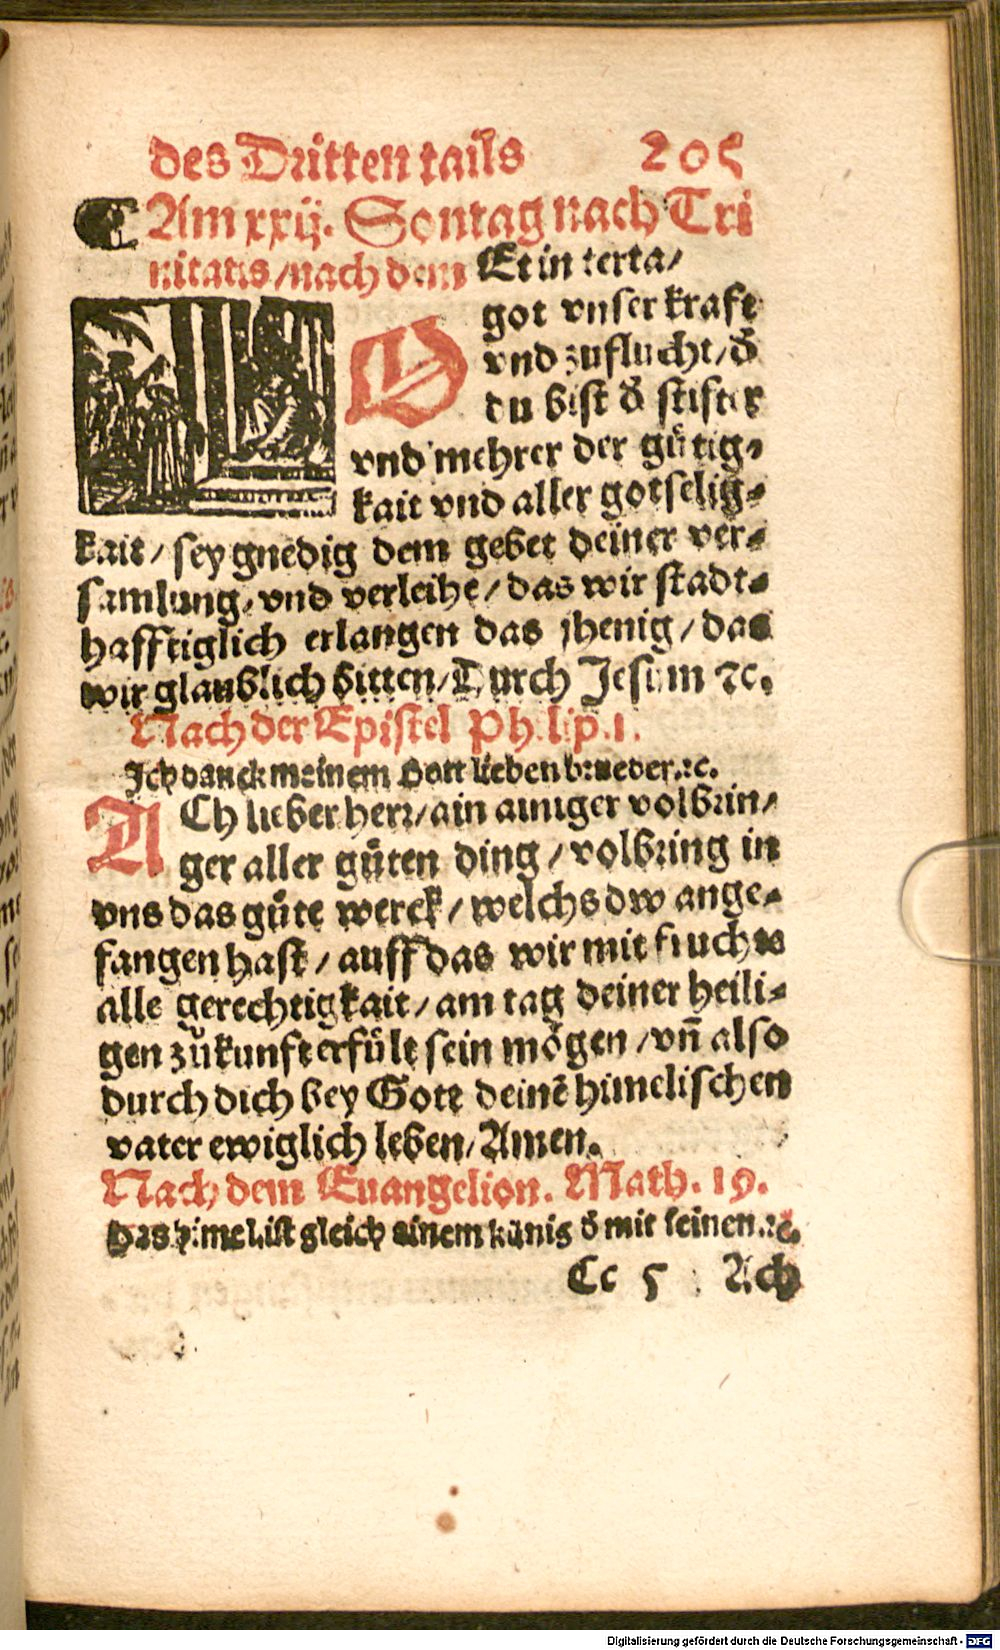 des Dritten tails 205
Am xxij. Sontag nach Tri
nitatis / nach dem Et in terta /
O got vnser kraft
vnd zuflucht / d̕
du bist d̕ stifter
vnd mehrer der gütig⸗
kait vnd aller gotselig⸗
kait / sey gnedig dem gebet deiner ver⸗
samlung, vnd verleihe / das wir stadt⸗
hafftiglich erlangen das jhenig / das
wir glaublich bitten / Durch Jesum ꝛc.
Nach der Epistel Philip. 1.
Ich danck meinem Gott lieben brueder.ꝛc.
ACh lieber herr / ain ainiger volbrin /
ger aller gůten ding / volbring in
vns das gůte werck / welchs dw ange⸗
fangen hast / auff das wir mit frucht
alle gerechtigkait / am tag deiner heili⸗
gen zůkunft erfült sein mögen / vn̄ also
durch dich bey Gott deinē himelischen
vater ewiglich leben / Amen.
Nach dem Euangelion. Math. 19.
Das himel ist gleich einem künig d̕ mit seinen.ꝛc.
Cc 5 Ach
Digitalisierung gefördert durch die Deutsche Forschungsgemeinschaft - DFG